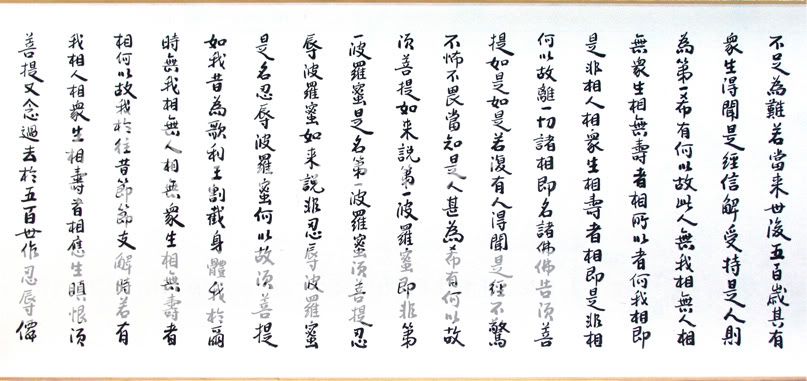 不足為難若當来世後五百歲其有
衆生得聞是經信解受持是人則
為第一希有何以故此人無我相無人相
無衆生相無壽者相所以者何我相即
是非相人相衆生相壽者相即是非相
何以故離一切諸相即名諸佛佛告須菩
提如是如是若復有人得聞是經不驚
不怖不畏當知是人甚為希有何以故
須菩提如来說第一波羅蜜即非第
一波羅蜜是名第一波羅蜜須菩提忍
辱波羅蜜如来說非忍辱波羅蜜
是名忍辱波羅蜜何以故須菩提
如我昔為歌利王割截身體我於爾
時無我相無人相無衆生相無壽者
相何以故我於往昔節節支解時若有
我相人相衆生相壽者相應生瞋恨須
菩提又念過去於五百世作忍辱僊